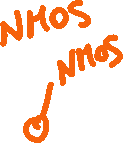 NMOS
NMOS